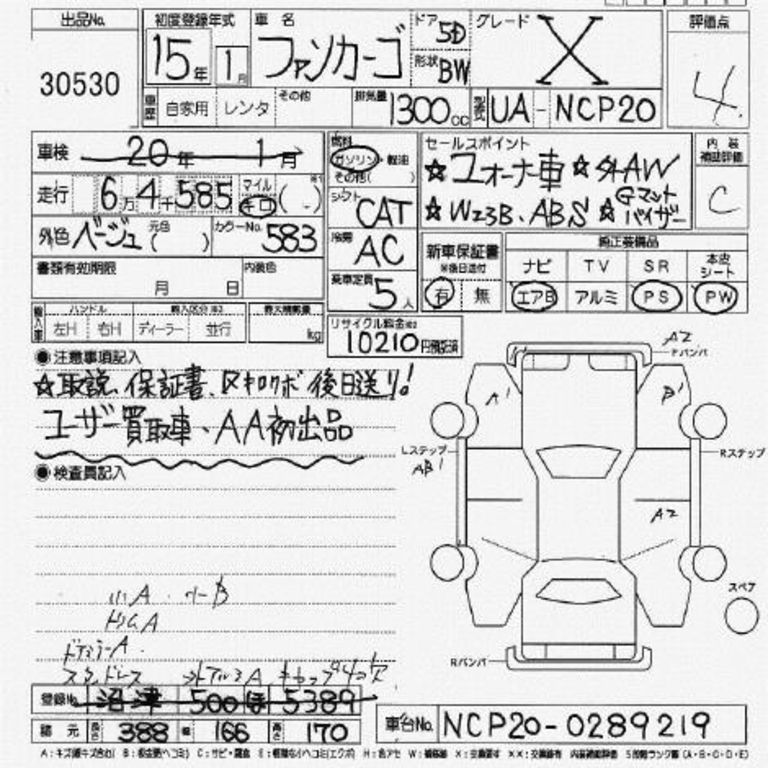 出品No. 30530
初度登録年式 15年 1月
車名 ファンカーゴ
ドア 5D
形状 BW
グレード X
評価点 4
車歴 自家用 レンタ その他
排気量 1300cc
型式 UA-NCP20
車検 20年 1月
走行 6万4千585 マイル キロ ( )
外色 ベージュ 元色 ( ) カラーNo. 583
書類有効期限 月 日 内装色
燃料 ガソリン・軽油 その他( )
シフト CAT
冷房 AC
乗車定員 5人
セールスポイント
☆ユーザー車☆外AW
☆WエアB・ABS☆Gマットバイザー
内装補助評価 C
新車保証書 ※後日送付 有 無
純正装備品
ナビ TV SR 本皮シート
エアB アルミ PS PW
輸入車 ハンドル 左H 右H ディーラー 並行 最大積載量 kg
リサイクル料金 10210円預託済
●注意事項記入
☆取説、保証書、Rキロクボ後日送り!
ユーザー買取車・AA初出品
●検査員記入
小A 小B
ドリムA
ドアミラーA
A2
Fバンパ
A1
B1
Lステップ
AB1
Rステップ
A2
スペア
Rバンパ
登録No. 沼津 500 ほ 5389
諸元 長さ 388 幅 166 高さ 170
車台No. NCP20-0289219